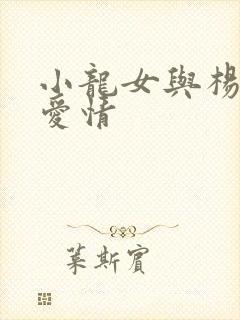 小龍女與楊
愛情
葉斯賓